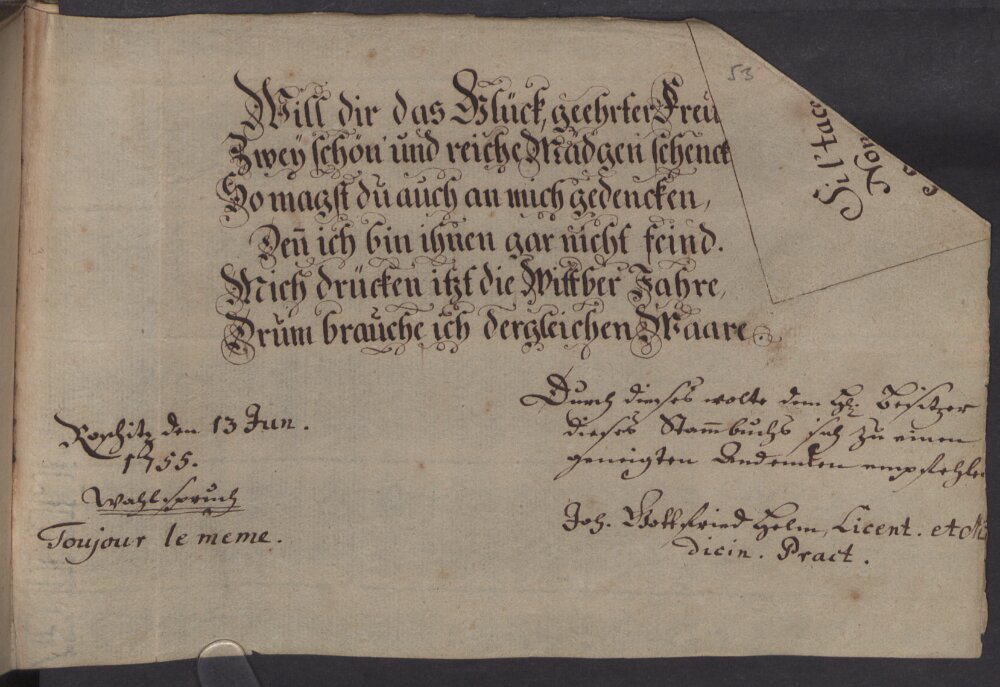 53
Will dir das Glück, geehrter Freu
Zwey schön und reiche Mädgen schenck
So magst du auch an mich gedencken,
Deñ ich bin ihnen gar nicht feind.
Mich drücken itzt die Wittber Jahre,
Drum brauche ich dergleichen Waare.
Si l'tace
Non
Roschitz den 13 Jun.
1755.
Wahlspruch
Toujour le meme.
Durch dieses wolte dem H. Besitzer
dieses Stammbuchs sich zu einen
geneigten Andencken empfehlen
Joh. Gottfried Helm, Licent. et M
dicin. Pract.